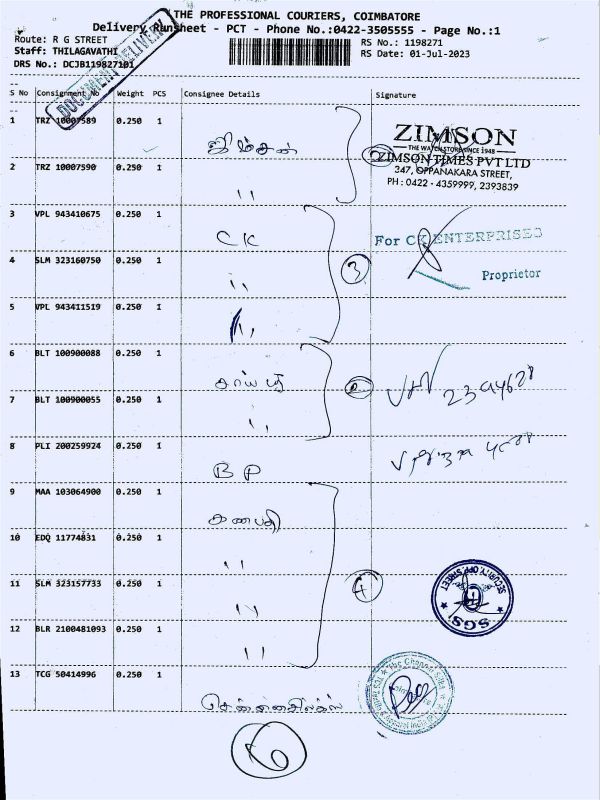 THE PROFESSIONAL COURIERS, COIMBATORE
Delivery Runsheet - PCT - Phone No.:0422-3505555 - Page No.:1
Route: R G STREET
RS No.: 1198271
Staff: THILAGAVATHI
RS Date: 01-Jul-2023
DRS No.: DCJB119827101
DOCUMENT DELIVERY
S No Consignment No Weight PCS Consignee Details Signature
1 TRZ 10007589 0.250 1
ஜிம்சன்
ZIMSON
THE WATCH STORE SINCE 1948
ZIMSON TIMES PVT LTD
347, OPPANAKARA STREET,
PH : 0422 - 4359999, 2393839
2 TRZ 10007590 0.250 1
"
3 VPL 943410675 0.250 1
CK
For CK ENTERPRISES
Proprietor
4 SLM 323160750 0.250 1
"
3
5 VPL 943411519 0.250 1
"
6 BLT 100900088 0.250 1
7 BLT 100900055 0.250 1
"
8 PLI 200259924 0.250 1
BP
9 MAA 103064900 0.250 1
கணபதி
10 EDQ 11774831 0.250 1
"
11 SLM 323157733 0.250 1
"
4
SECURITY OPP. STREET
SGS
12 BLR 2100481093 0.250 1
"
13 TCG 50414996 0.250 1
சென்னைசில்க்ஸ்